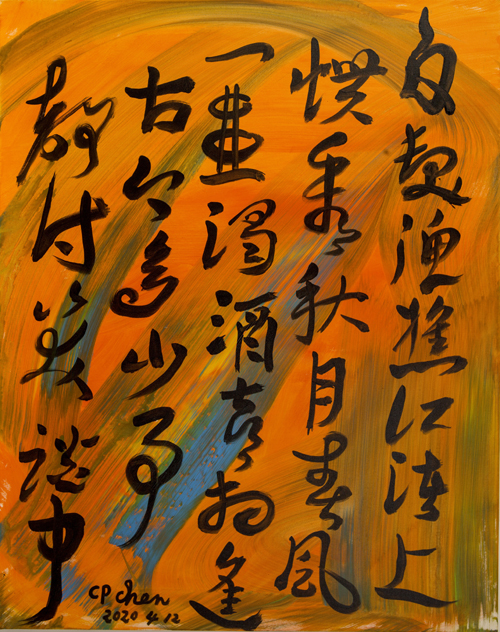 白髮漁樵江渚上
慣看秋月春風
一壺濁酒喜相逢
古今多少事
都付笑談中
CP chen
2020 4.12